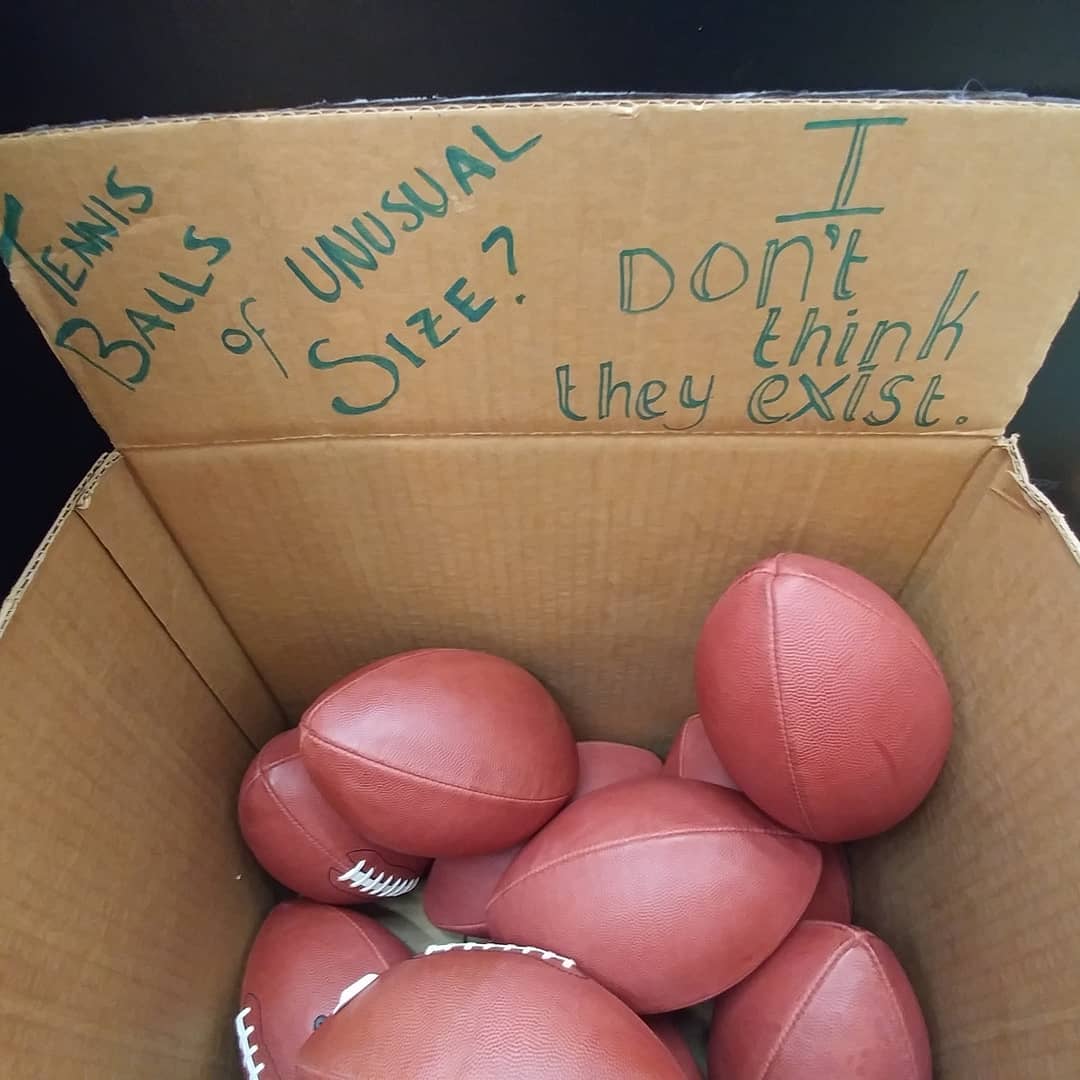 TENNIS
BALLS
of UNUSUAL
SIZE?
I
DON't
think
they exist.